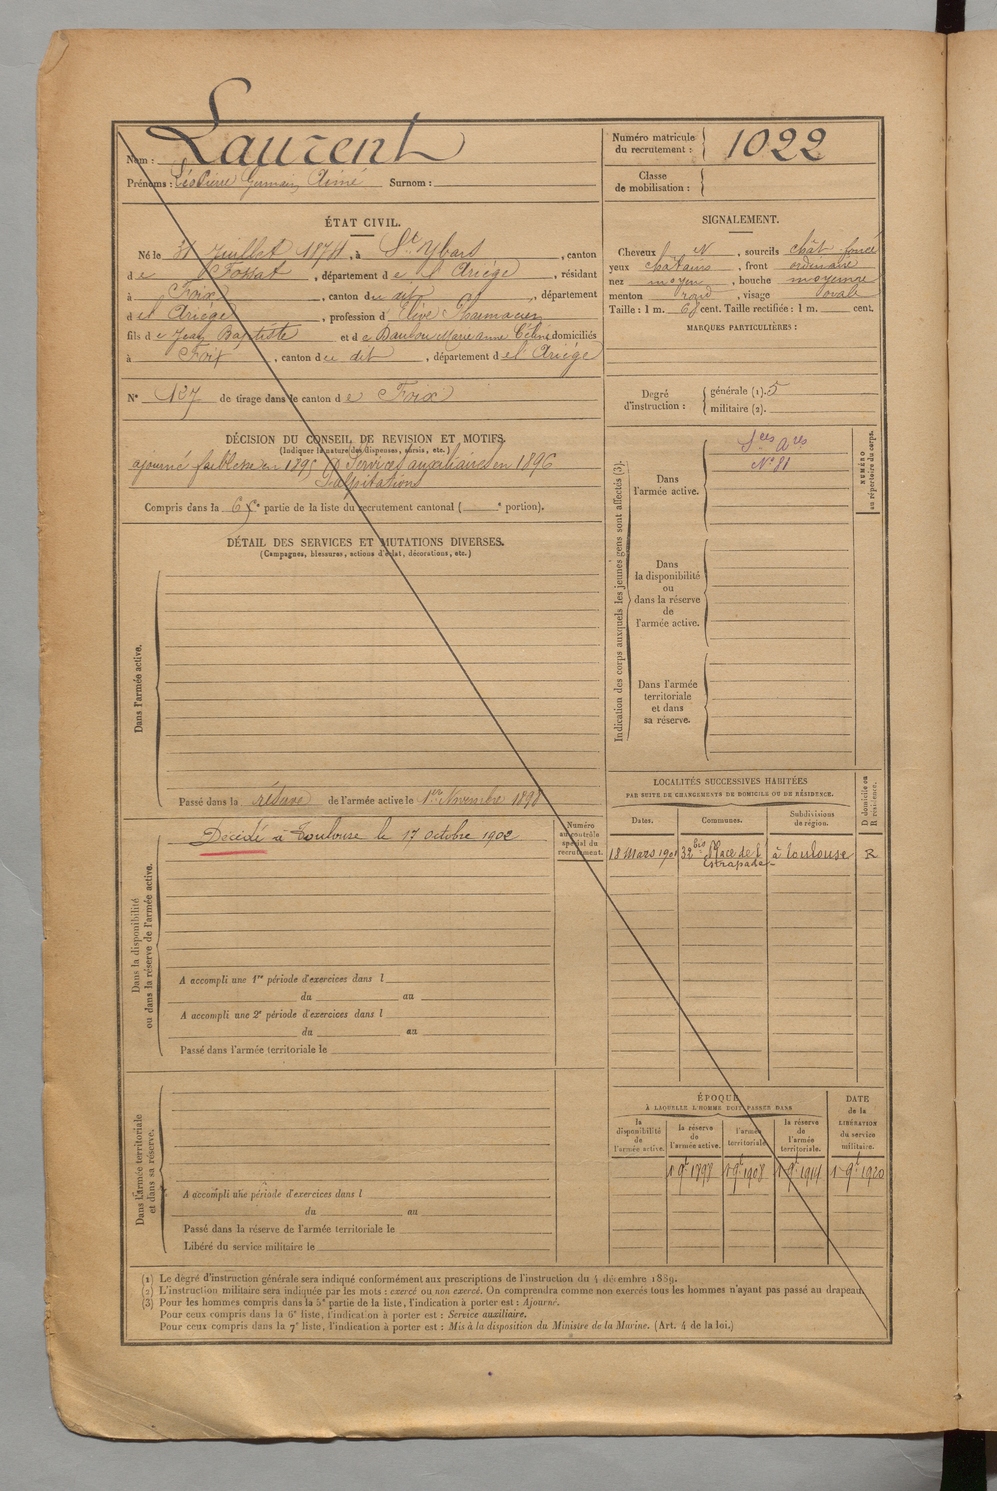 Nom : Laurent
Prénoms : Pierre Germain Aimé Surnom :
Numéro matricule du recrutement : 1022
Classe de mobilisation :
ÉTAT CIVIL.
Né le 31 Juillet 1874, à St Ybars, canton
de Fossat, département de l'Ariège, résidant
à Foix, canton du dit, département
d el Ariège, profession d'Elève Pharmacien
fils de Jean Baptiste et de Marie Anne Céline domiciliés
à Foix, canton du dit, département de l'Ariège
N° 127 de tirage dans le canton de Foix
DÉCISION DU CONSEIL DE REVISION ET MOTIFS.
(Indiquer la nature des dispenses, sursis, etc.)
ajourné faiblesse en 1895 Services auxiliaires en 1896
Palpitations
Compris dans la 6e partie de la liste du recrutement cantonal ( e portion).
DÉTAIL DES SERVICES ET MUTATIONS DIVERSES.
(Campagnes, blessures, actions d'éclat, décorations, etc.)
Dans l'armée active.
Passé dans la réserve de l'armée active le 1er Novembre 1898
Dans la disponibilité
ou dans la réserve de l'armée active.
Décédé à Toulouse le 17 octobre 1902
Numéro
au contrôle
spécial du
recrutement.
A accompli une 1re période d'exercices dans l
du au
A accompli une 2e période d'exercices dans l
du au
Passé dans l'armée territoriale le
Dans l'armée territoriale
et dans sa réserve.
A accompli une période d'exercices dans l
du au
Passé dans la réserve de l'armée territoriale le
Libéré du service militaire le
SIGNALEMENT.
Cheveux N, sourcils chât. foncé
yeux chatains, front ordinaire
nez moyen, bouche moyenne
menton rond, visage ovale
Taille : 1 m. 68 cent. Taille rectifiée : 1 m. cent.
MARQUES PARTICULIÈRES :
Degré
d'instruction :
générale (1). 5
militaire (2).
Indication des corps auxquels les jeunes gens sont affectés (3).
Dans
l'armée active.
Sces Ares
N° 81
NUMÉRO
au répertoire du corps.
Dans
la disponibilité
ou
dans la réserve
de
l'armée active.
Dans l'armée
territoriale
et dans
sa réserve.
LOCALITÉS SUCCESSIVES HABITÉES
PAR SUITE DE CHANGEMENTS DE DOMICILE OU DE RÉSIDENCE.
D domicile ou
R résidence.
Dates. Communes. Subdivisions de région.
18 Mars 1901 32 bis Place de l'Estrapade à Toulouse R
ÉPOQUE
À LAQUELLE L'HOMME DOIT PASSER DANS
DATE
de la
LIBÉRATION
du service
militaire.
la disponibilité de l'armée active.
la réserve de l'armée active.
l'armée territoriale.
la réserve de l'armée territoriale.
1 9e 1898 1 9e 1908 1 9e 1914 1 9e 1920
(1) Le degré d'instruction générale sera indiqué conformément aux prescriptions de l'instruction du 4 décembre 1889.
(2) L'instruction militaire sera indiquée par les mots : exercé ou non exercé. On comprendra comme non exercés tous les hommes n'ayant pas passé au drapeau.
(3) Pour les hommes compris dans la 5e partie de la liste, l'indication à porter est : Ajourné.
Pour ceux compris dans la 6e liste, l'indication à porter est : Service auxiliaire.
Pour ceux compris dans la 7e liste, l'indication à porter est : Mis à la disposition du Ministre de la Marine. (Art. 4 de la loi.)